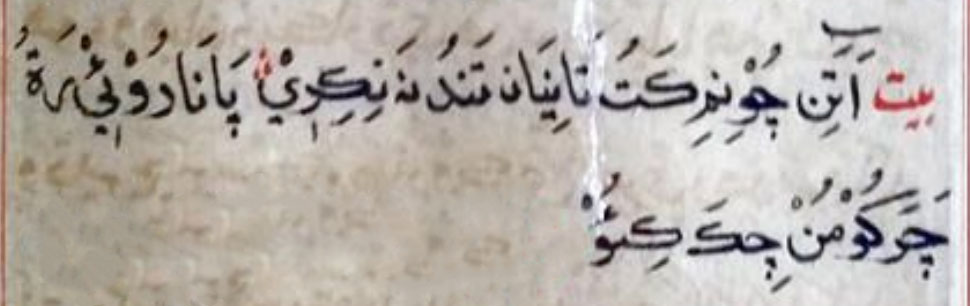 بيت اَتَنِ چُوْنِمِ كَتُ تَانِيَان تَنْدُ نَه نِكِرِيْ پَانَا دُوْئِيْ رَةُ
چَرَكُوْ مُنْ چِكَ كِئُوْ